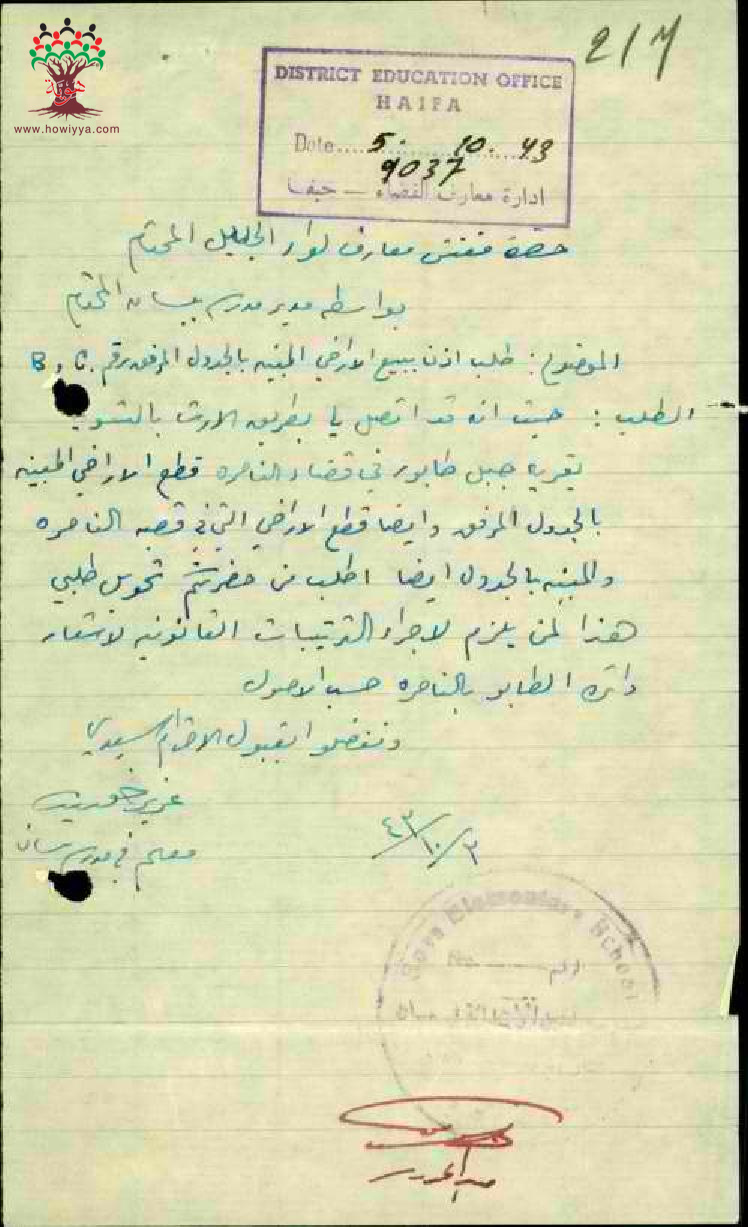 هوية
www.howiyya.com
217
DISTRICT EDUCATION OFFICE
HAIFA
Date..... 5. 10. 43
9037
ادارة معارف القضاء — حيفا
حضرة مفتش معارف لواء الجليل المحترم
بواسطة مدير مدرسة بيسان المحترم
الموضوع: طلب اذن ببيع الاراضي المبينه بالجدول المرفق رقم B, C.
الطلب: حيث انه قد اتصل لي بطريق الارث بالتسويه
بقرية جبل طابور في قضاء الناصره قطع الاراضي المبينه
بالجدول المرفق وايضا قطع الاراضي التي في قصبه الناصره
والمبينه بالجدول ايضا اطلب من حضرتكم تحويل طلبي
هذا لمن يلزم لاجراء الترتيبات القانونيه لاشعار
دائرة الطابو بالناصره حسب الاصول
وتفضلوا بقبول الاحترام سيدي
عزيز
معلم في مدرسة بيسان
٤٣/١٠/٣
Elementary School
No. ........ الرقم
بيسان
مدير المدرسة